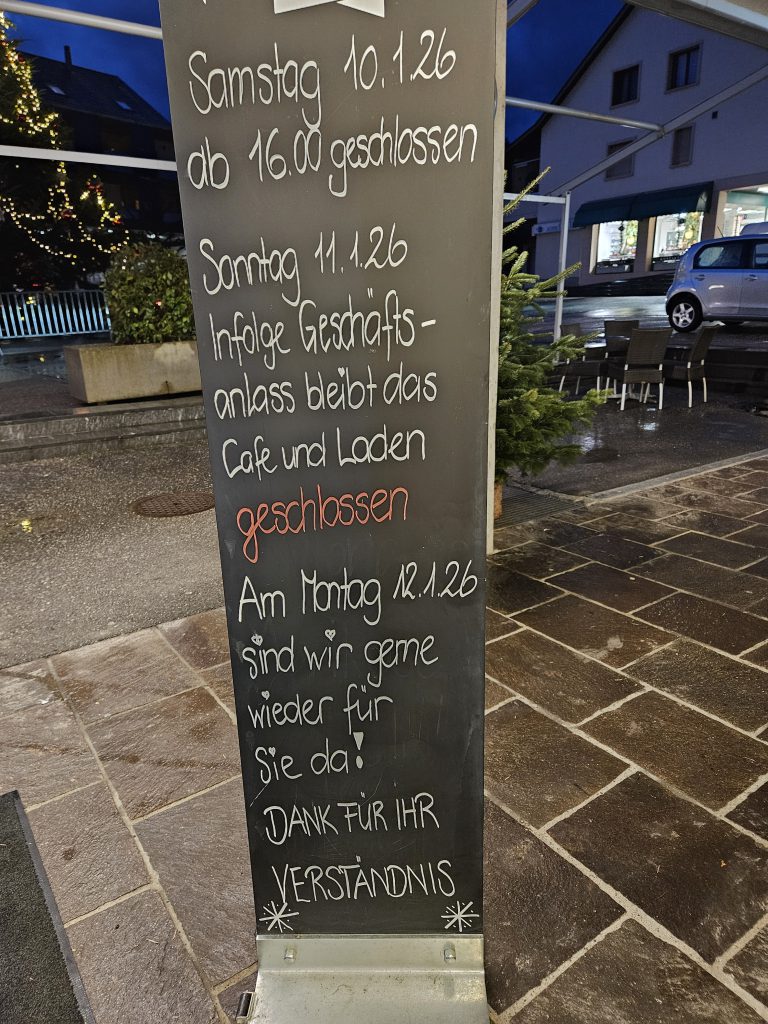 Samstag 10.1.26
ab 16.00 geschlossen
Sonntag 11.1.26
Infolge Geschäfts-
anlass bleibt das
Cafe und Laden
geschlossen
Am Montag 12.1.26
sind wir gerne
wieder für
Sie da!
DANK FÜR IHR
VERSTÄNDNIS